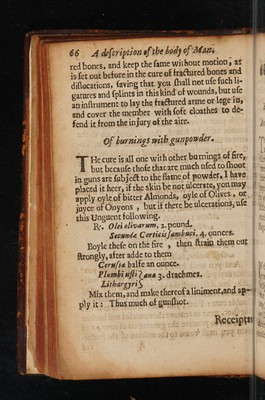 66 A description of the body of Man,
red bones, and keep the same without motion, as
is set out before in the cure of fractured bones and
dislocations, saving that you shall not use such li-
gatures and splints in this kind of wounds, but use
an instrument to lay the fractured arme or lege in,
and cover the member with soft cloathes to de-
fend it from the injury of the aire.
Of burnings with gunpowder.
THe cure is all one with other burnings of fire,
but because those that are much used to shoot
in guns are subject to the flame of powder, I have
placed it heer, if the skin be not ulcerate, you may
apply oyle of bitter Almonds, oyle of Olives, or
juyce of Onyons, but if there be ulcerations, use
this Unguent following.
℞. Olei olivarum, 2. pound.
Secundæ Corticis sambuci, 4. ounces.
Boyle these on the fire, then strain them out
strongly, after adde to them
Cerusia halfe an ounce.
Plumbi usti } ana 3. drachmes.
Lithargyri
Mix them, and make thereof a liniment, and ap-
ply it: Thus much of gunshot.
Receipts